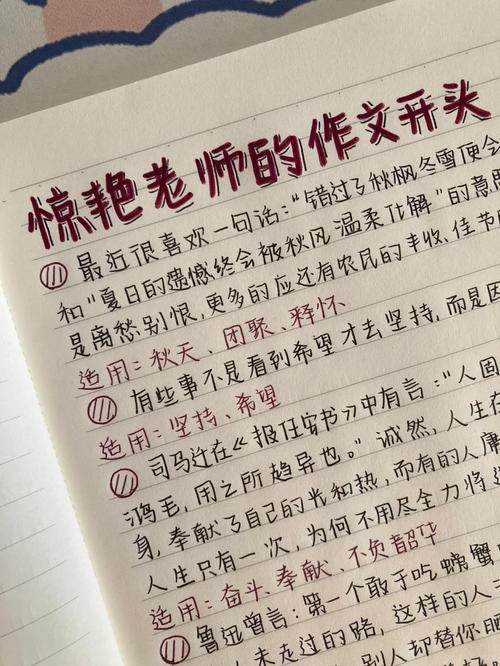 惊艳老师的作文开头
最近很喜欢一句话："错过了秋枫冬雪便会
和"夏日的遗憾终会被秋风温柔化解"的意思
是离愁别恨,更多的应还有农民的丰收、佳节
适用：秋天、团聚、释怀
有些事不是看到希望才去坚持,而是因
适用：坚持、希望
司马迁在《报任安书》中有言："人固
鸿毛,用之所趋异也。"诚然,人生在
身,奉献了自己的光和热,而有的人庸
人生只有一次,为何不用尽全力将这
适用：奋斗、奉献、不负韶华
鲁迅曾言：第一个敢于吃螃蟹
人未走过的路,这样的人
别人却替你